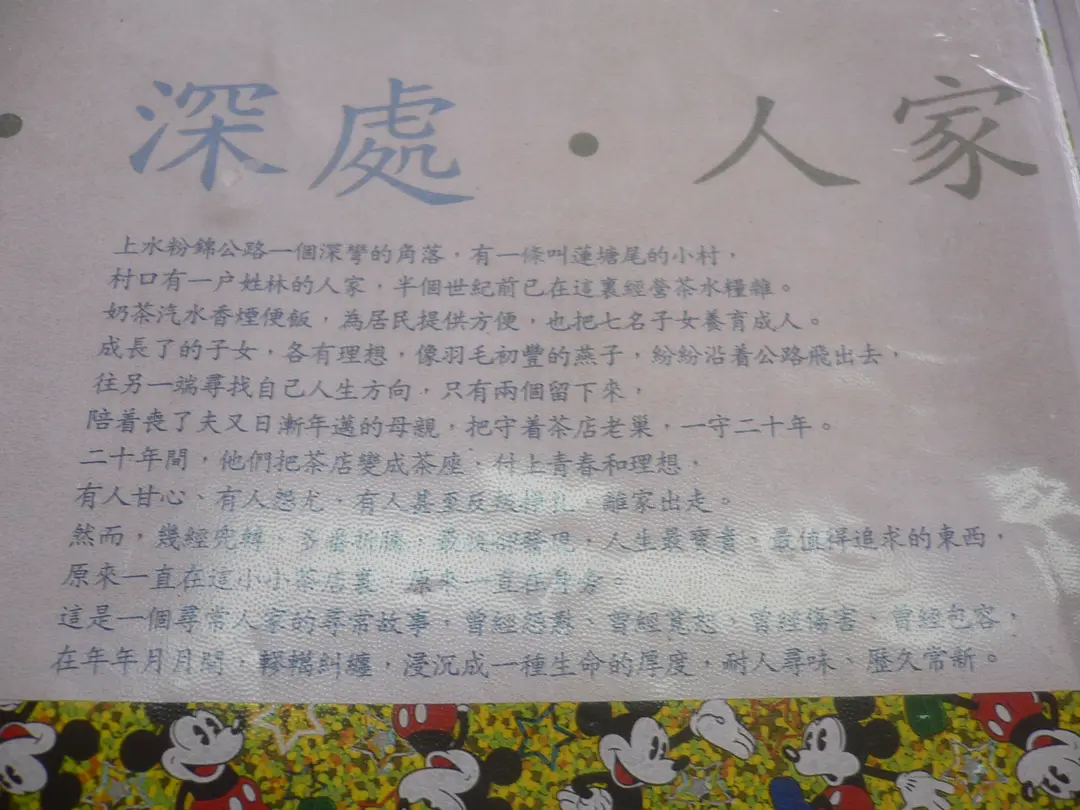 • 深處 • 人家
上水粉錦公路一個深彎的角落，有一條叫蓮塘尾的小村，
村口有一户姓林的人家，半個世紀前已在這裏經營茶水糧雜。
奶茶汽水香煙便飯，為居民提供方便，也把七名子女養育成人。
成長了的子女，各有理想，像羽毛初豐的燕子，紛紛沿着公路飛出去，
往另一端尋找自己人生方向，只有兩個留下來，
陪着喪了夫又日漸年邁的母親，把守着茶店老巢，一守二十年。
二十年間，他們把茶店變成茶座、付上青春和理想，
有人甘心、有人怨尤、有人甚至反叛 離家出走。
然而，幾經兜轉、多番折騰，最後卻發現，人生最寶貴、最值得追求的東西，
原來一直在這小小茶店裏、原來一直在身旁。
這是一個尋常人家的尋常故事，曾經怨懟、曾經寬恕、曾經傷害、曾經包容，
在年年月月間，轇轕糾纏，浸沉成一種生命的厚度，耐人尋味、歷久常新。